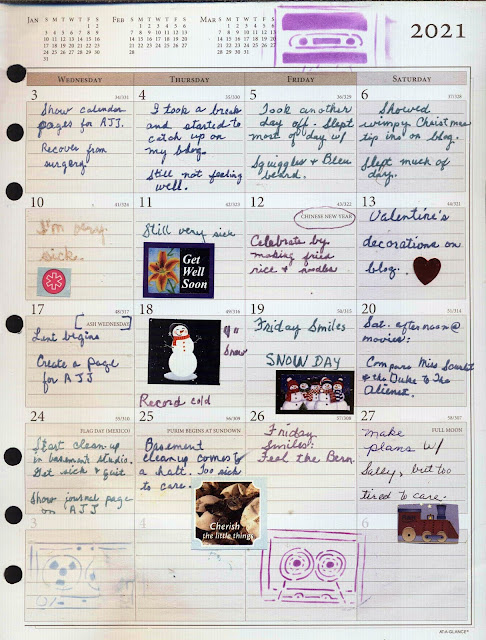 JAN
S M T W T F S
1 2
3 4 5 6 7 8 9
10 11 12 13 14 15 16
17 18 19 20 21 22 23
24 25 26 27 28 29 30
31
FEB
S M T W T F S
1 2 3 4 5 6
7 8 9 10 11 12 13
14 15 16 17 18 19 20
21 22 23 24 25 26 27
28
MAR
S M T W T F S
1 2 3 4 5 6
7 8 9 10 11 12 13
14 15 16 17 18 19 20
21 22 23 24 25 26 27
28 29 30 31
2021
WEDNESDAY THURSDAY FRIDAY SATURDAY
3 34/331
Show calendar
pages for AJJ.
Recover from
surgery
4 35/330
I took a break
and started to
catch up on
my blog.
Still not feeling
well.
5 36/329
Took another
day off. Slept
most of day w/
Squiggles & Bleu
beard.
6 37/328
Showed
wimpy Christmas
tip ins on blog.
Slept much of
day.
10 41/324
I'm very
sick.
11 42/323
Still very sick
Get
Well
Soon
12 43/322
CHINESE NEW YEAR
Celebrate by
making fried
rice & noodles
13 44/321
Valentine's
decorations on
blog.
17 48/317
ASH WEDNESDAY
Lent begins
Create a page
for AJJ
18 49/316
snow
Record cold
19 50/315
Friday Smiles
SNOW DAY
20 51/314
Sat. afternoon @
movies:
Compare Miss Scarlet
& the Duke to The
Alienist.
24 55/310
FLAG DAY (MEXICO)
Start clean-up
in basement studio.
Get sick & quit
Show journal page
on AJJ
25 56/309
PURIM BEGINS AT SUNDOWN
Basement
cleanup comes to
a halt. Too sick
to care.
Cherish
the little things
26 57/308
Friday
Smiles:
Feel the Bern.
27 58/307
FULL MOON
make
plans w/
Sally, but too
tired to care.
3
4
6
AT-A-GLANCE®